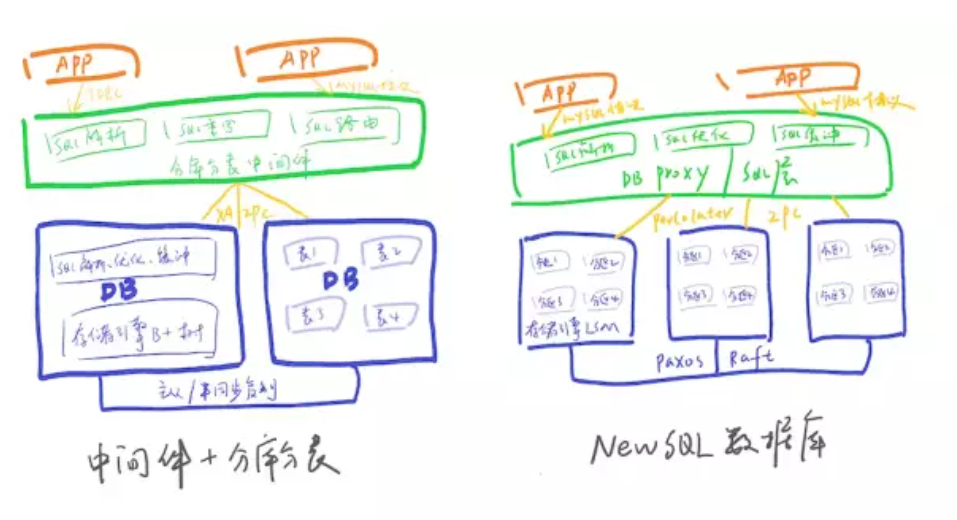 APP
APP
JDBC
mysql协议
SQL解析
SQL重写
SQL路由
分库分表中间件
XA 2PC
SQL解析、优化、缓冲
DB
存储引擎B+树
表1
表2
DB
表3
表4
主从/半同步复制
中间件+分库分表
APP
APP
mysql协议
mysql协议
SQL解析
SQL优化
SQL缓冲
DB proxy / SQL层
percolator 2PC
分区1
分区2
分区3
分区4
存储引擎LSM
分区1
分区2
分区3
分区4
分区1
分区2
分区3
分区4
Paxos Raft
NewSQL数据库